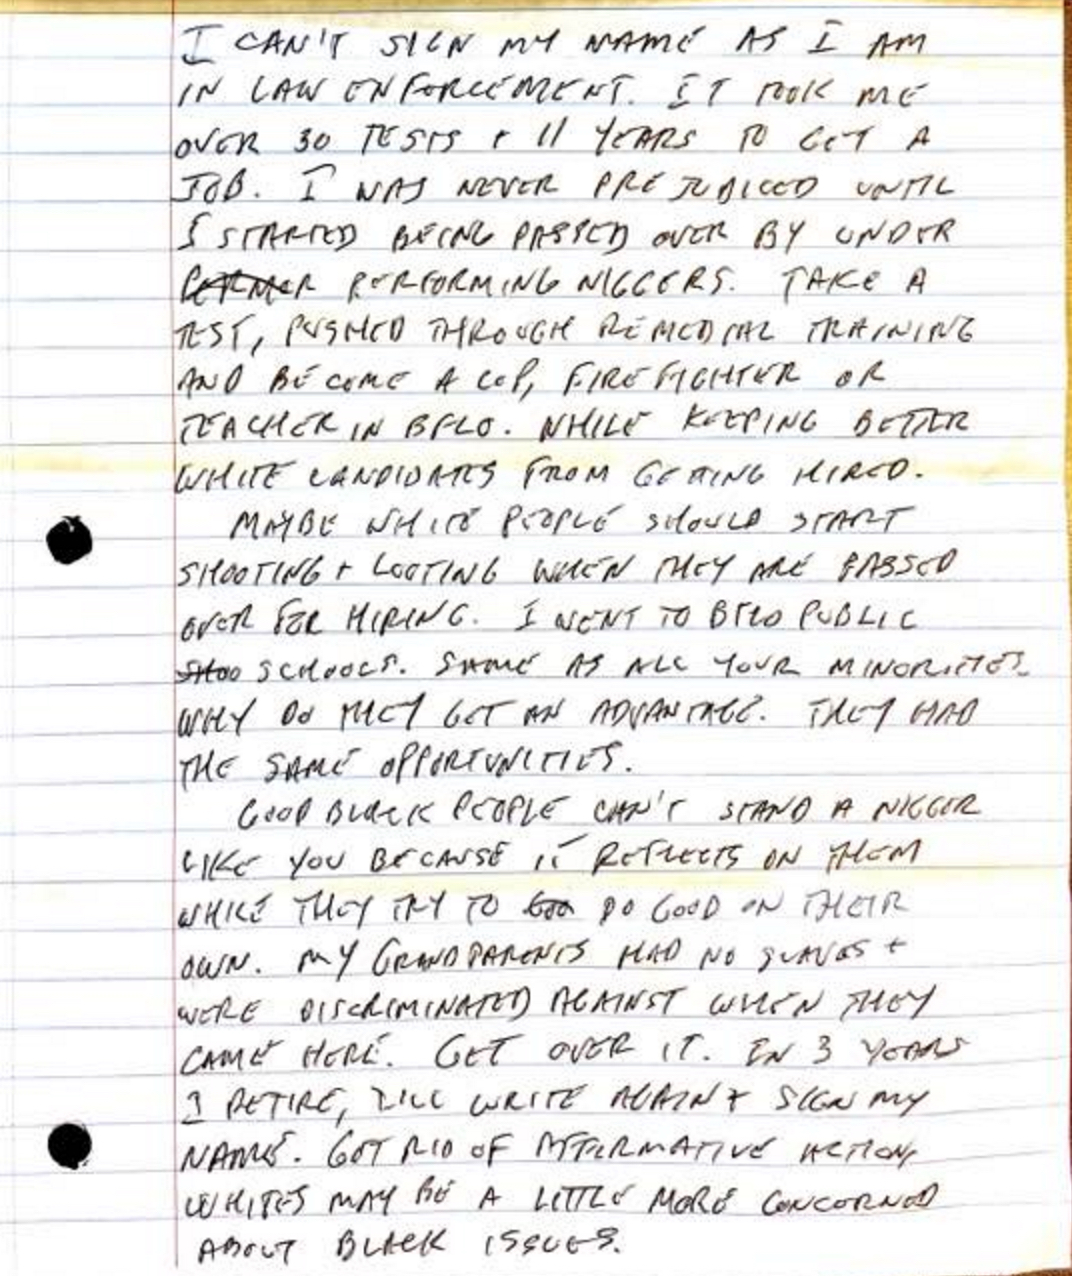 I CAN'T SIGN MY NAME AS I AM
IN LAW ENFORCEMENT. IT TOOK ME
OVER 30 TESTS + 11 YEARS TO GET A
JOB. I WAS NEVER PREJUDICED UNTIL
I STARTED BEING PASSED OVER BY UNDER
PERFORMING NIGGERS. TAKE A
TEST, PUSHED THROUGH REMEDIAL TRAINING
AND BECOME A COP, FIREFIGHTER OR
TEACHER IN BFLO. WHILE KEEPING BETTER
WHITE CANDIDATES FROM GETTING HIRED.
MAYBE WHITE PEOPLE SHOULD START
SHOOTING + LOOTING WHEN THEY ARE PASSED
OVER FOR HIRING. I WENT TO BFLO PUBLIC
SCHOOLS. SAME AS ALL YOUR MINORITIES.
WHY DO THEY GET AN ADVANTAGE. THEY HAD
THE SAME OPPORTUNITIES.
GOOD BLACK PEOPLE CAN'T STAND A NIGGER
LIKE YOU BECAUSE IT REFLECTS ON THEM
WHILE THEY TRY TO DO GOOD ON THEIR
OWN. MY GRANDPARENTS HAD NO SLAVES +
WERE DISCRIMINATED AGAINST WHEN THEY
CAME HERE. GET OVER IT. IN 3 YEARS
I RETIRE, I'LL WRITE AGAIN + SIGN MY
NAME. GET RID OF AFFIRMATIVE ACTION,
WHITES MAY BE A LITTLE MORE CONCERNED
ABOUT BLACK ISSUES.